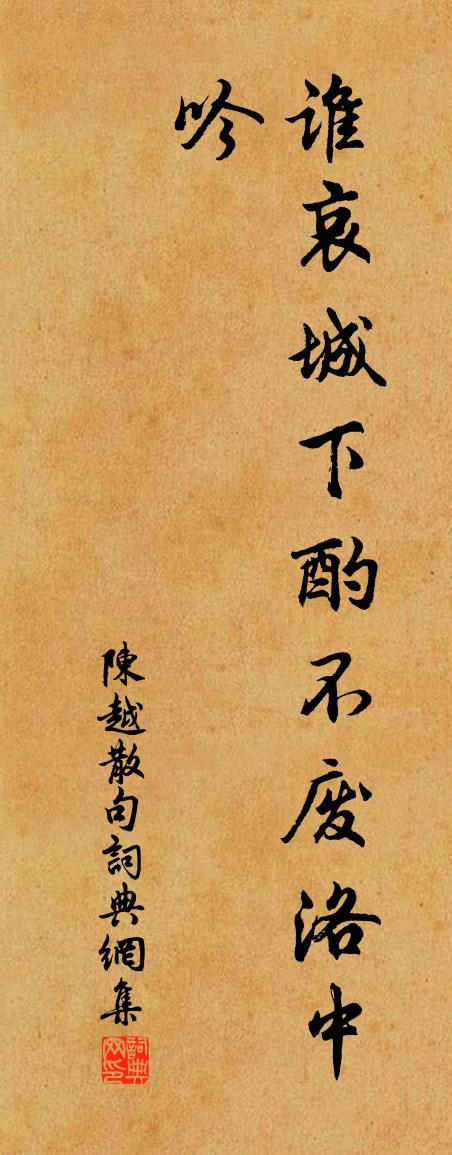 誰哀城下酌不废洛中
吟
陳越散句詞典網集
詞典网印